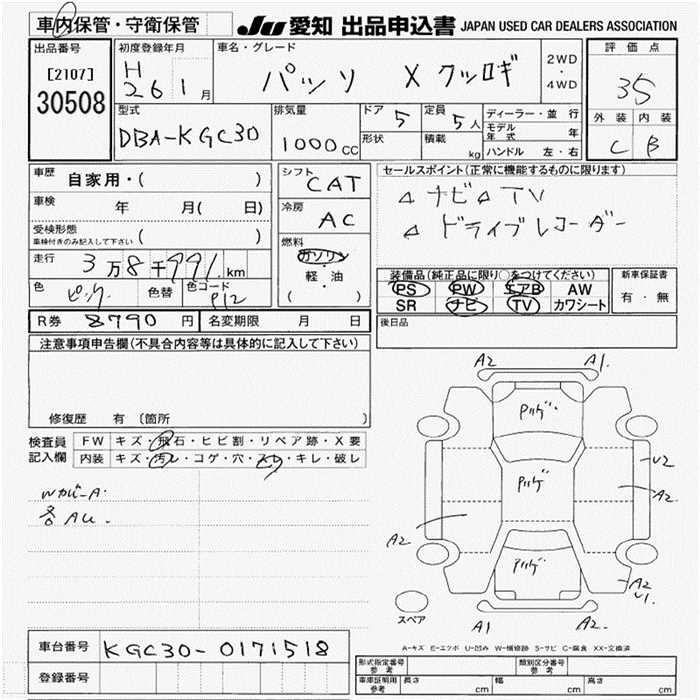 車内保管・守衛保管
JU 愛知 出品申込書 JAPAN USED CAR DEALERS ASSOCIATION
出品番号
[2107]
30508
初度登録年月
H
26 1月
車名・グレード
パッソ X クツロギ
2WD
・
4WD
評価点
35
外装 内装
C B
型式
DBA-KGC30
排気量
1000CC
ドア 5
形状
定員 5人
積載 kg
ディーラー・並行
モデル年式 年
ハンドル 左・右
車歴 自家用・( )
車検 年 月( 日)
受検形態
車検付きのみ記入して下さい ( )
走行 3万8千991km
色 ピンク 色替 色コード P12
シフト CAT
冷房 AC
燃料
ガソリン
軽・油
( )
セールスポイント(正常に機能するものに限ります)
△ナビ△TV
△ドライブレコーダー
装備品(純正品に限り○をつけてください)
PS PW エアB AW
SR ナビ TV カワシート
新車保証書
有・無
後日品
R券 8790円 名変期限 月 日
注意事項申告欄(不具合内容等は具体的に記入して下さい)
修復歴 有 〔箇所 〕
検査員
記入欄
FW キズ・飛石・ヒビ割・リペア跡・X要
内装 キズ・汚レ・コゲ・穴・スレ・キレ・破レ
WカバーA.
各AU.
A2 A1.
Pルーゲ
U2
A2
Aルーゲ
A2
Pルーゲ
A2
U1.
スペア
A1 A2.
A-キズ E-エクボ U-凹み W-補修跡 S-サビ C-腐食 XX-交換済
車台番号 KGC30-0171518
登録番号
形式指定番号
参考
類別区分番号
参考
車庫証明用
参考
長さ cm 幅 cm 高さ cm